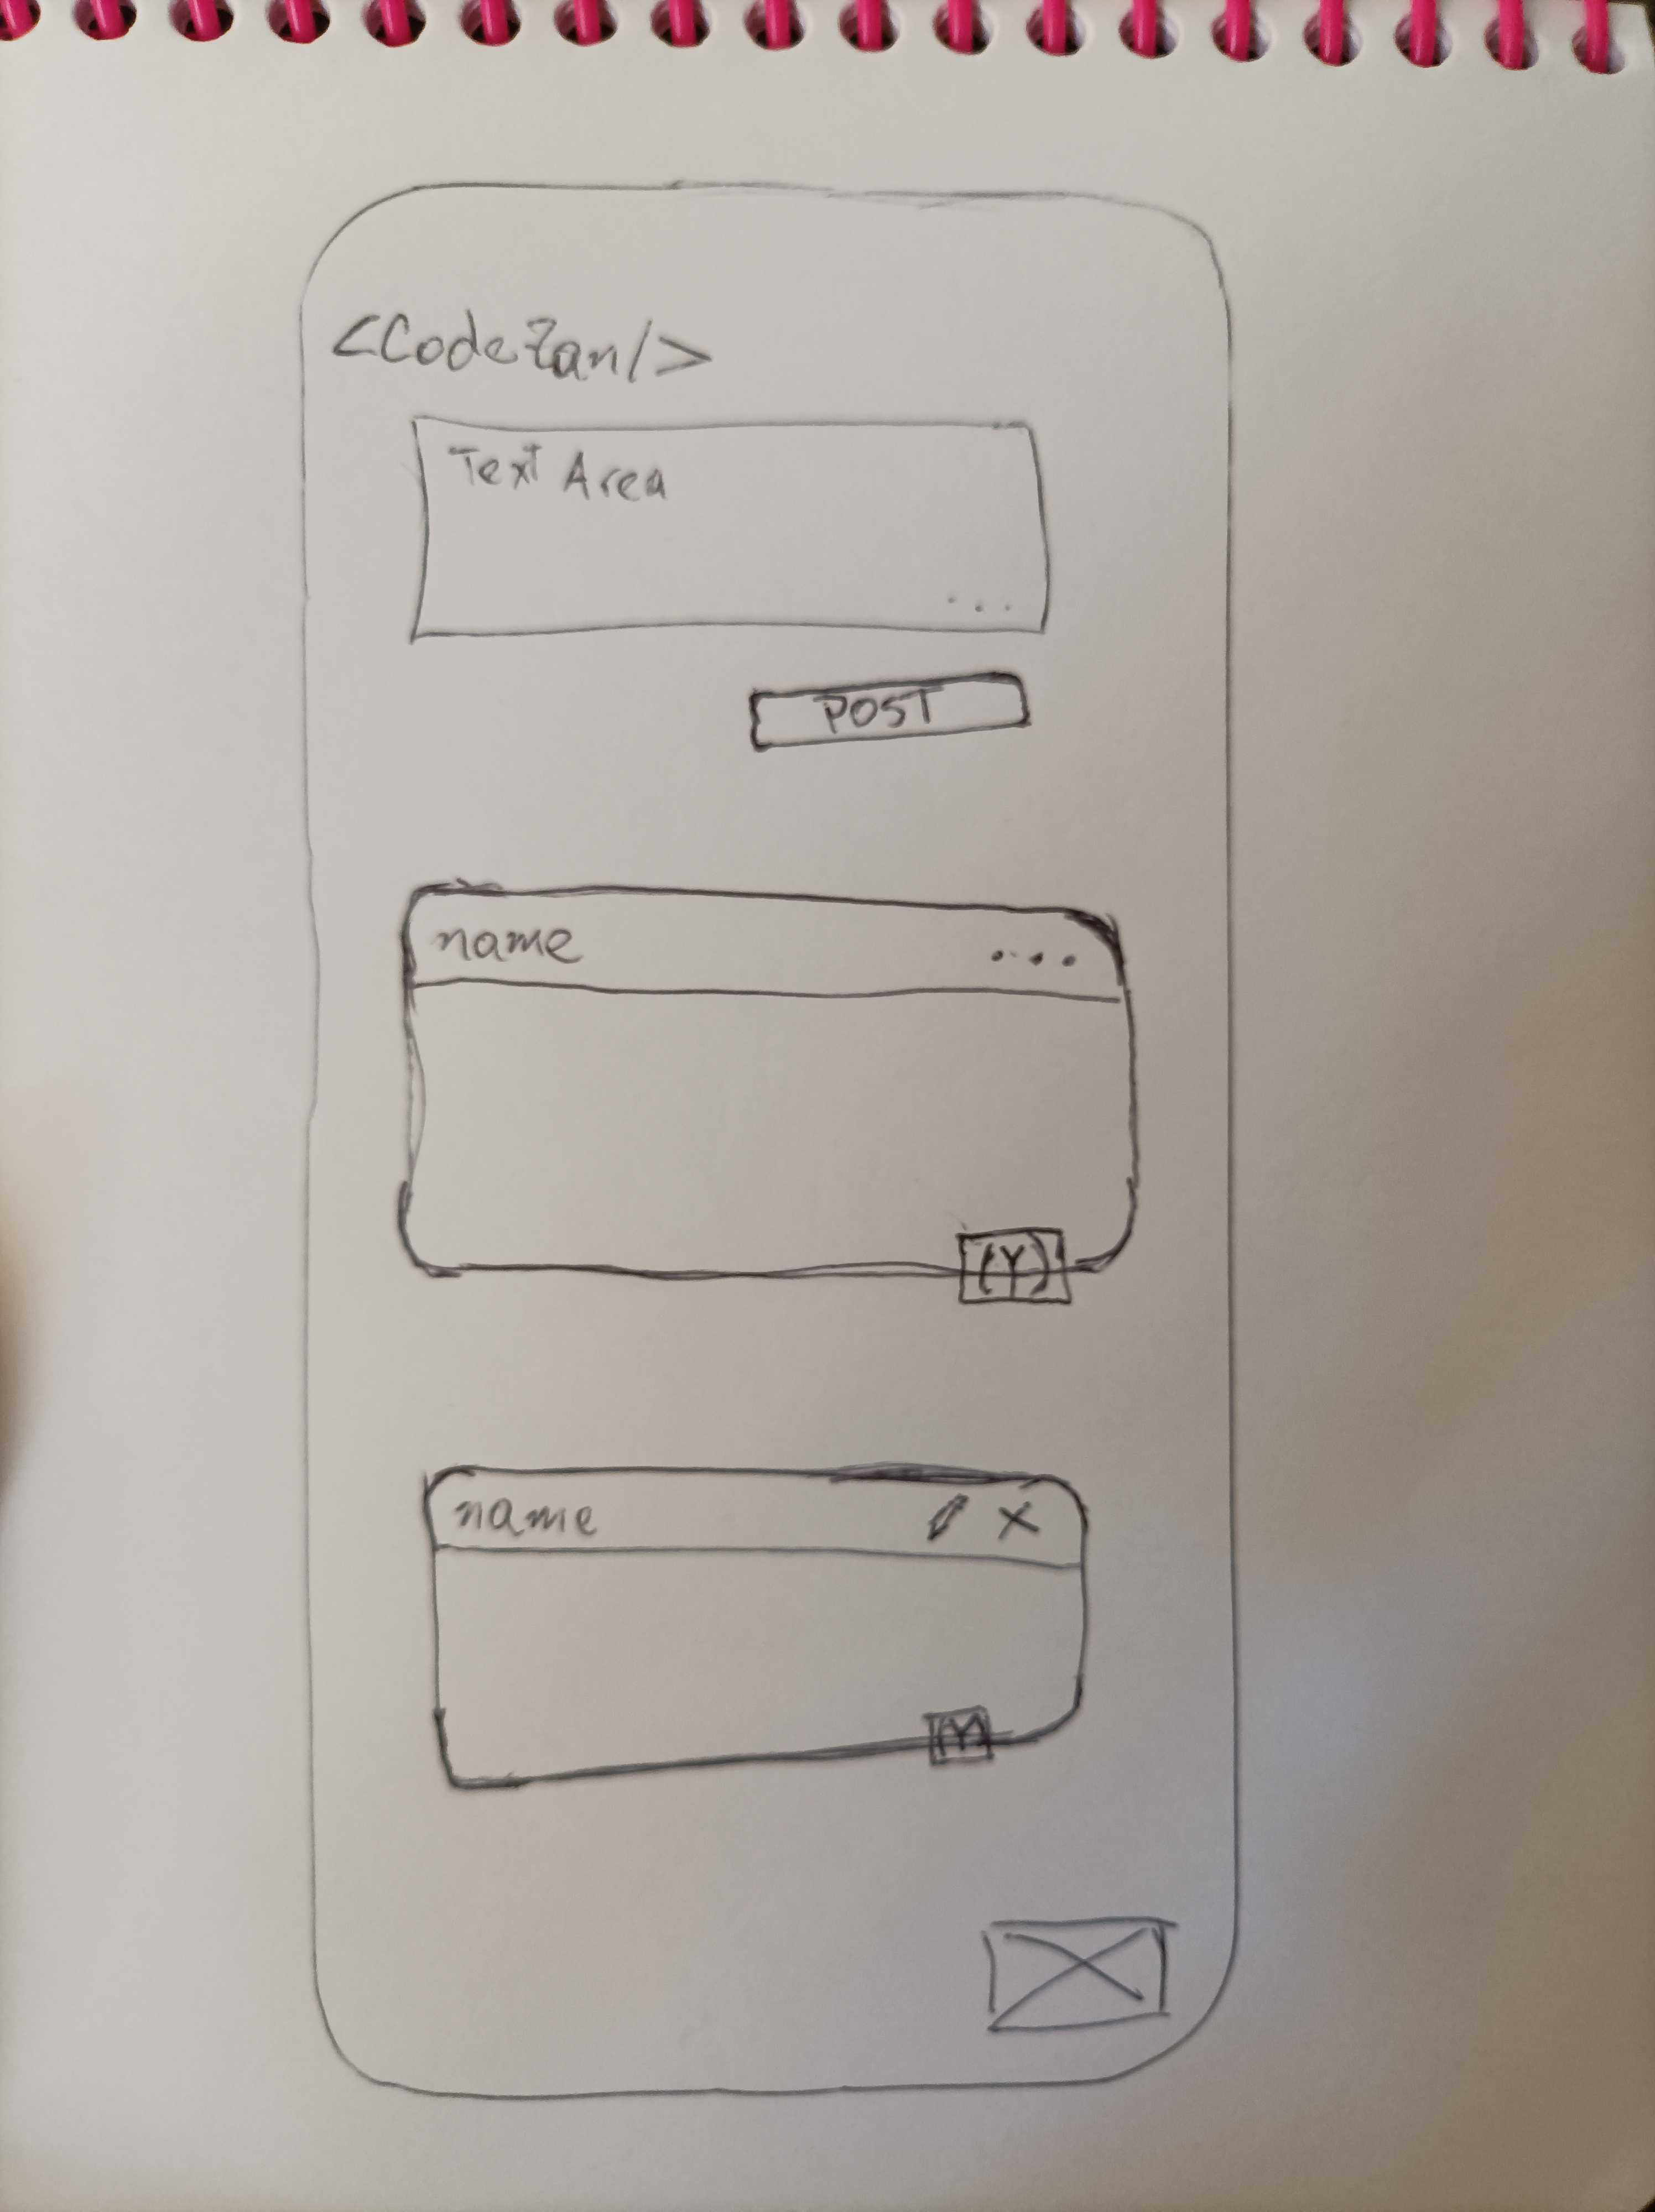 <CodeZan/>
Text Area
...
POST
name ...
(Y)
name X
(Y)